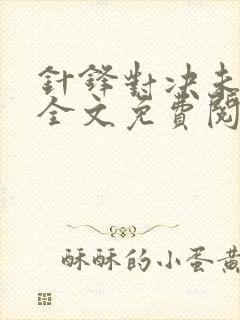 針鋒對決未
全文免費閱
酥酥的小蛋黃